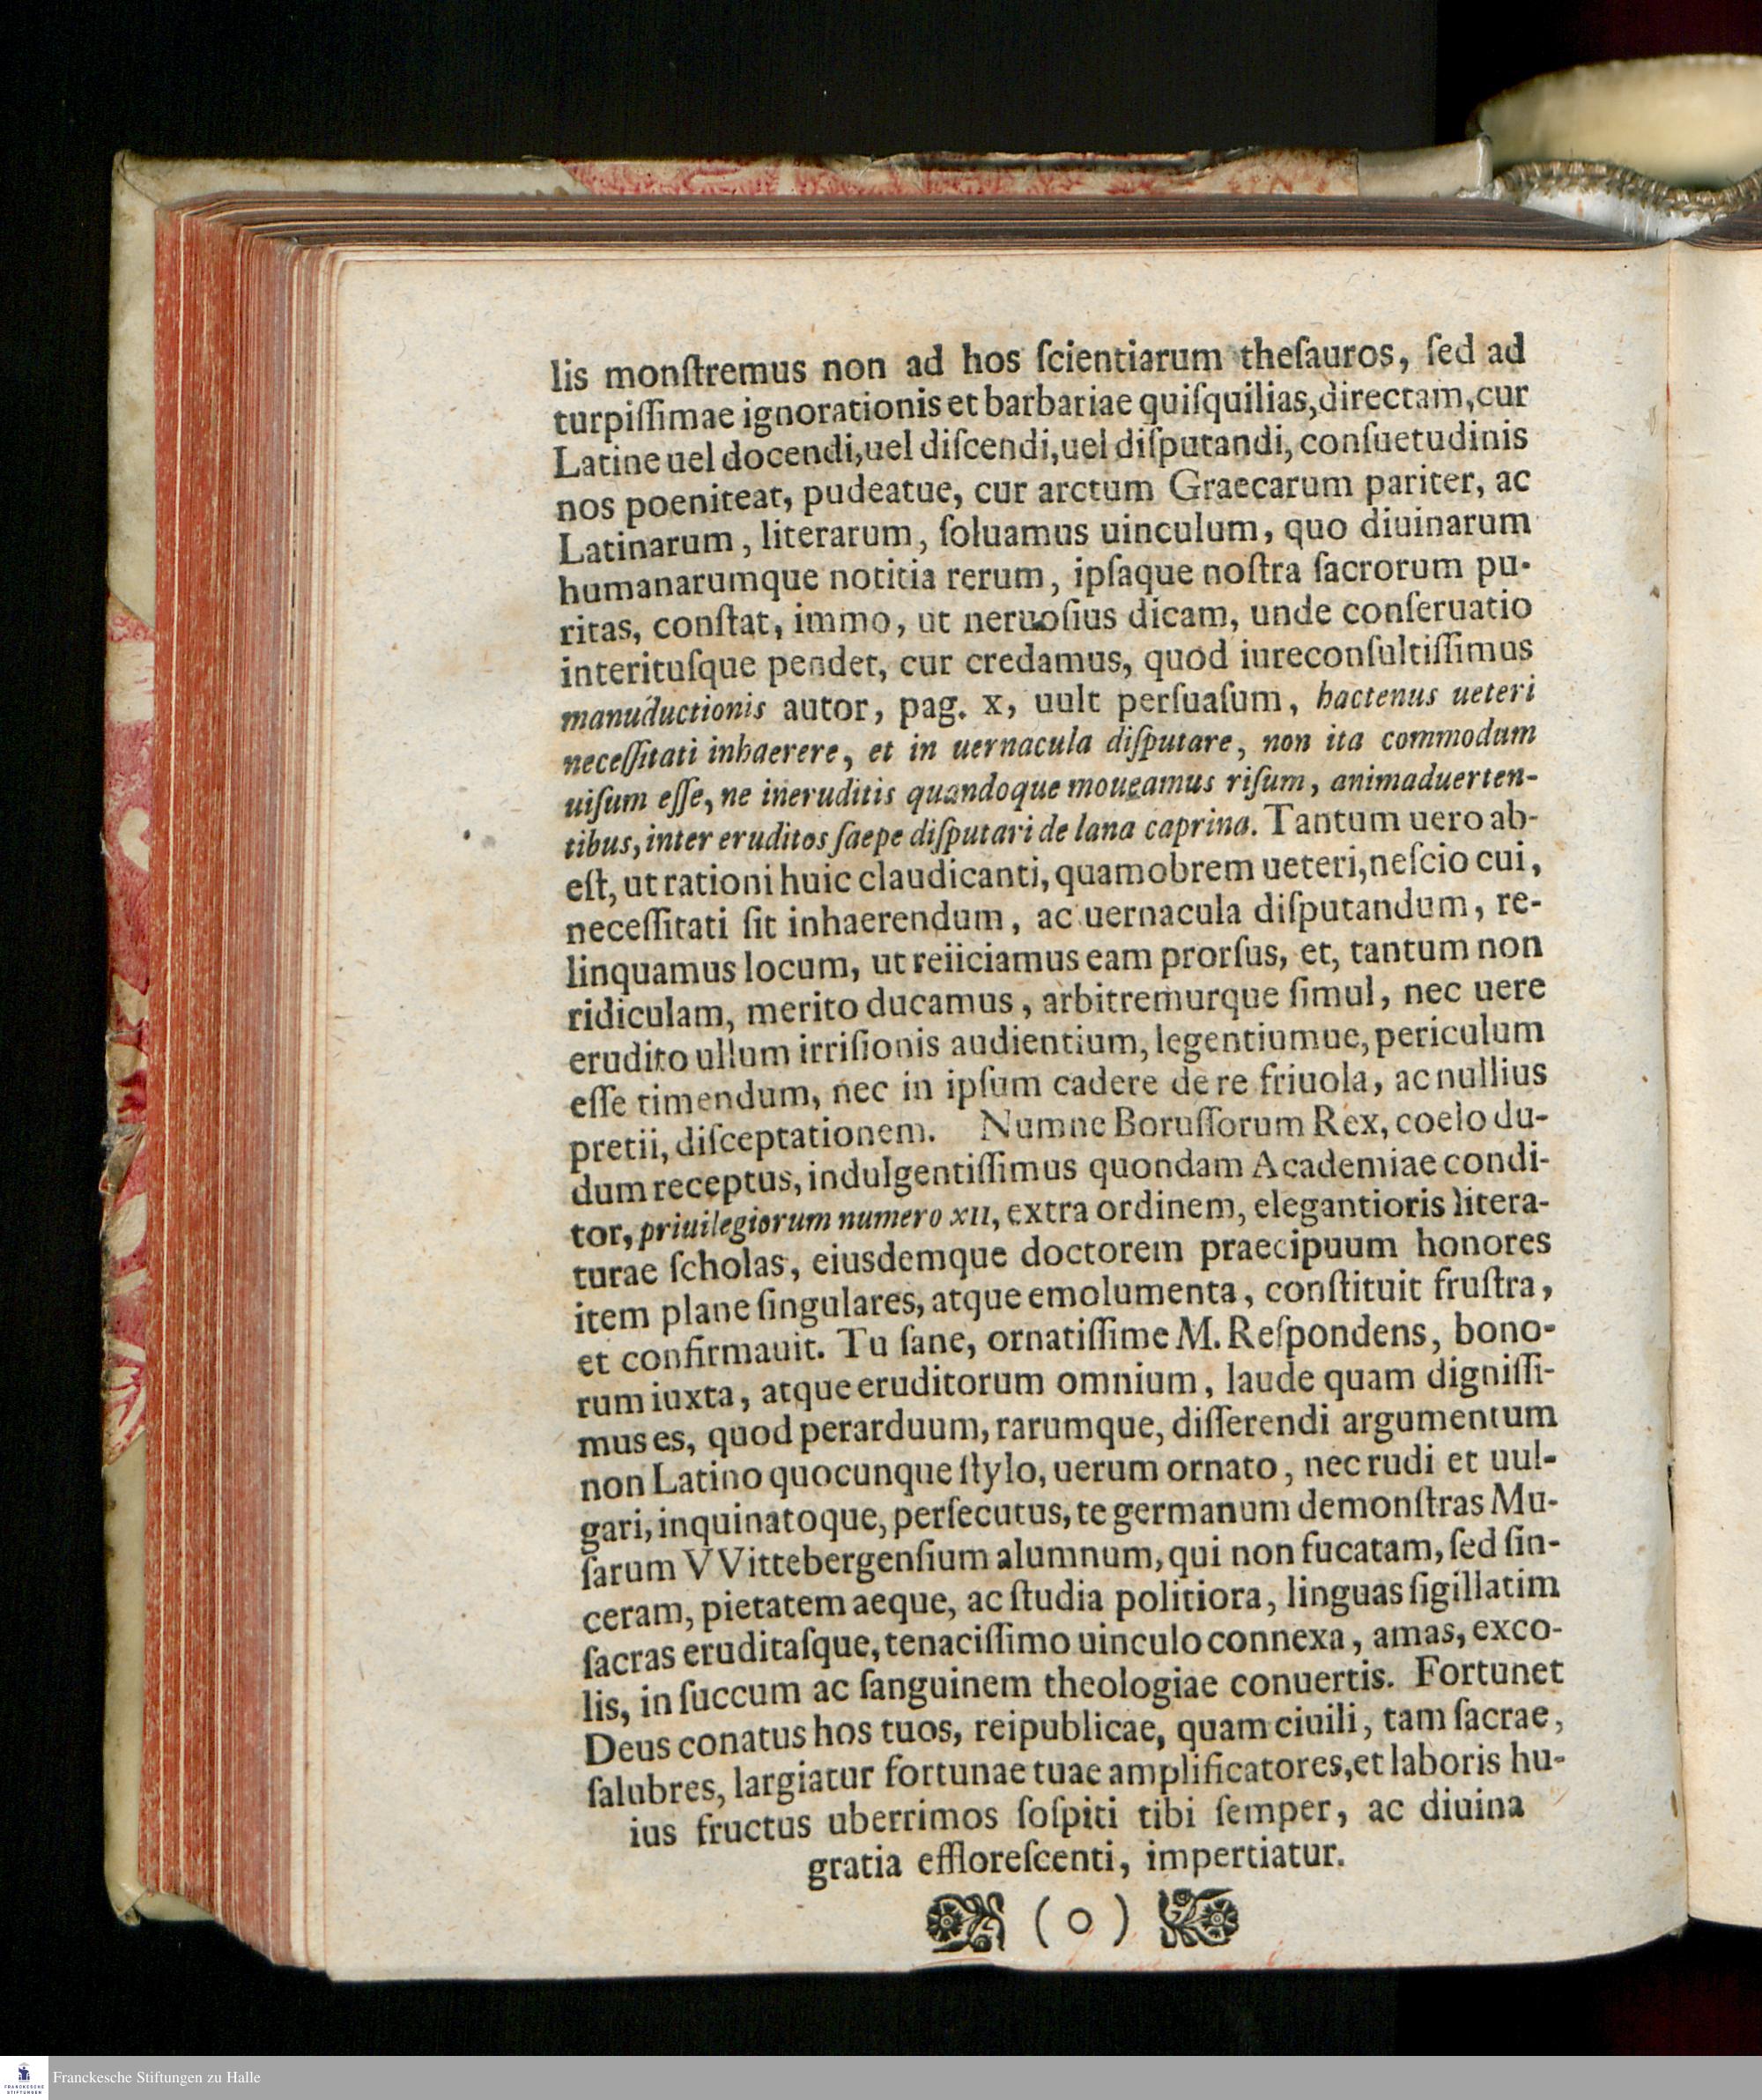 lis monſtremus non ad hos ſcientiarum theſauros, ſed ad
turpiſſimae ignorationis et barbariae quiſquilias, directam, cur
Latine uel docendi, uel diſcendi, uel diſputandi, conſuetudinis
nos poeniteat, pudeatue, cur arctum Graecarum pariter, ac
Latinarum, literarum, ſoluamus uinculum, quo diuinarum
humanarumque notitia rerum, ipſaque noſtra ſacrorum pu-
ritas, conſtat, immo, ut neruoſius dicam, unde conſeruatio
interituſque pendet, cur credamus, quod iureconſultiſſimus
manuductionis autor, pag. x, uult perſuaſum, hactenus ueteri
neceſſitati inhaerere, et in uernacula diſputare, non ita commodum
uiſum eſſe, ne ineruditis quandoque moueamus riſum, animaduerten-
tibus, inter eruditos ſaepe diſputari de lana caprina. Tantum uero ab-
eſt, ut rationi huic claudicanti, quamobrem ueteri, neſcio cui,
neceſſitati ſit inhaerendum, ac uernacula diſputandum, re-
linquamus locum, ut reiiciamus eam prorſus, et, tantum non
ridiculam, merito ducamus, arbitremurque ſimul, nec uere
erudito ullum irriſionis audientium, legentiumue, periculum
eſſe timendum, nec in ipſum cadere de re friuola, ac nullius
pretii, diſceptationem. Numne Boruſſorum Rex, coelo du-
dum receptus, indulgentiſſimus quondam Academiae condi-
tor, priuilegiorum numero XII, extra ordinem, elegantioris litera-
turae ſcholas, eiusdemque doctorem praecipuum honores
item plane ſingulares, atque emolumenta, conſtituit fruſtra,
et confirmauit. Tu ſane, ornatiſſime M. Reſpondens, bono-
rum iuxta, atque eruditorum omnium, laude quam digniſſi-
mus es, quod perarduum, rarumque, diſſerendi argumentum
non Latino quocunque ſtylo, uerum ornato, nec rudi et uul-
gari, inquinatoque, perſecutus, te germanum demonſtras Mu-
ſarum VVittebergenſium alumnum, qui non fucatam, ſed ſin-
ceram, pietatem aeque, ac ſtudia politiora, linguas ſigillatim
ſacras eruditaſque, tenaciſſimo uinculo connexa, amas, exco-
lis, in ſuccum ac ſanguinem theologiae conuertis. Fortunet
Deus conatus hos tuos, reipublicae, quam ciuili, tam ſacrae,
ſalubres, largiatur fortunae tuae amplificatores, et laboris hu-
ius fructus uberrimos ſoſpiti tibi ſemper, ac diuina
gratia effloreſcenti, impertiatur.
( o )
FRANCKESCHE
STIFTUNGEN
Franckesche Stiftungen zu Halle